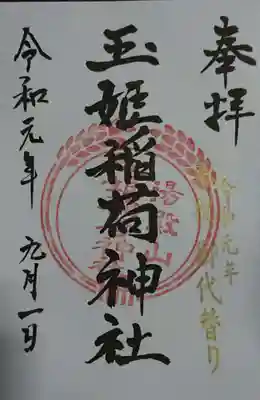 奉拝
玉姫稲荷神社
令和元年 九月一日
令和元年
御代替り